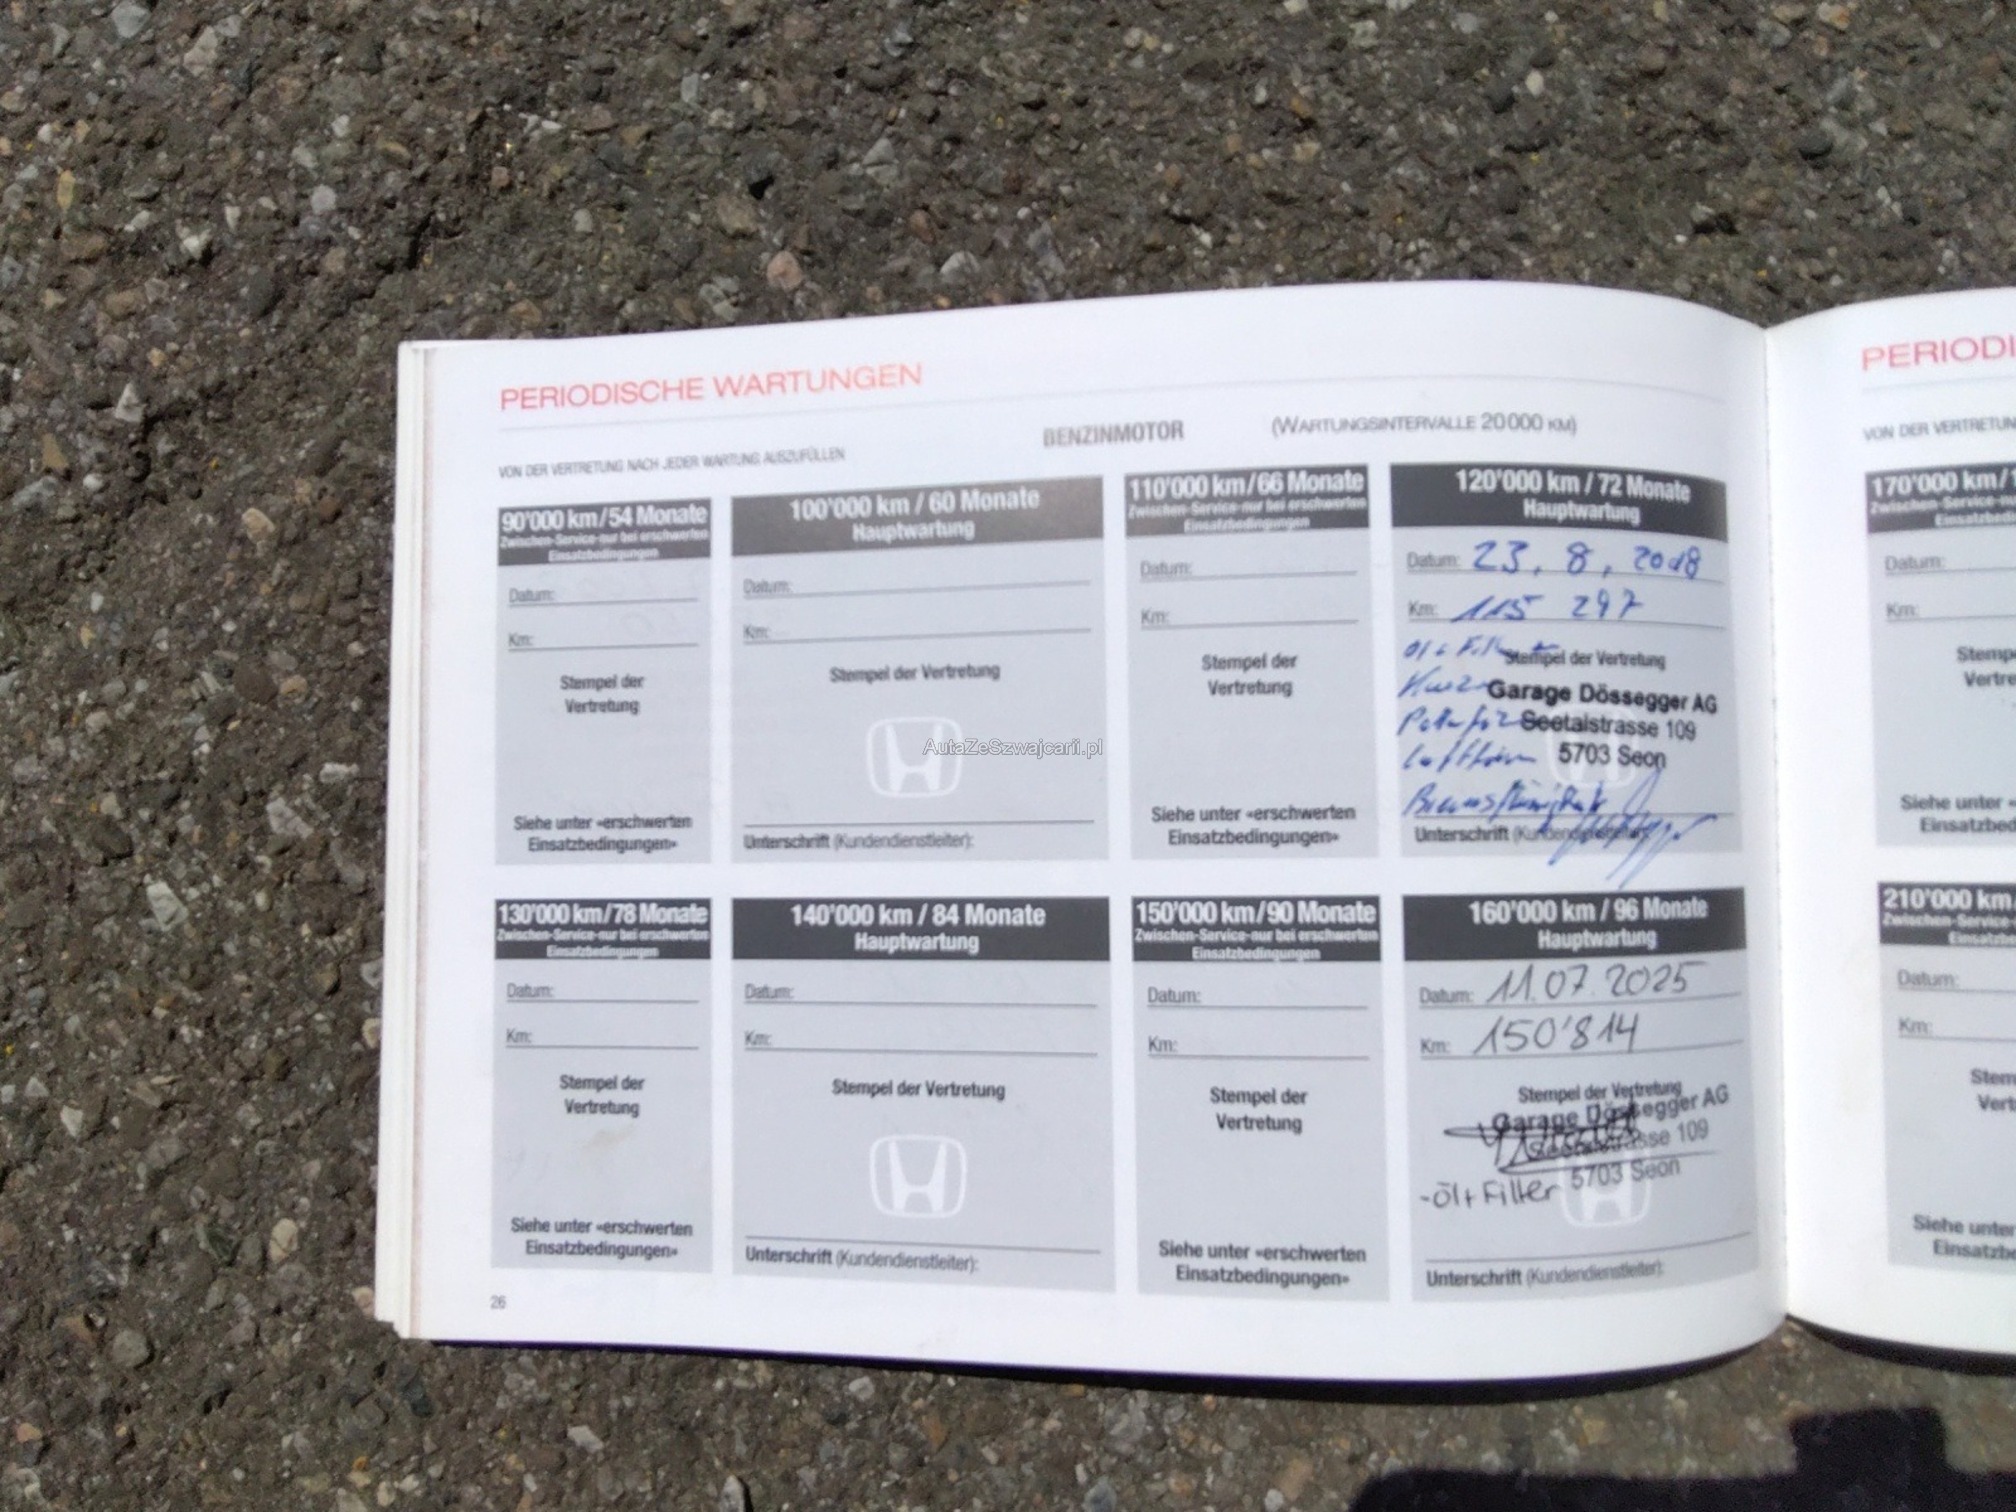 PERIODISCHE WARTUNGEN
BENZINMOTOR (WARTUNGSINTERVALLE 20000 KM)
VON DER VERTRETUNG NACH JEDER WARTUNG AUSZUFÜLLEN
90'000 km/54 Monate
Zwischen-Service-nur bei erschwerten
Einsatzbedingungen
Datum:
Km:
Stempel der
Vertretung
Siehe unter «erschwerten
Einsatzbedingungen»
100'000 km / 60 Monate
Hauptwartung
Datum:
Km:
Stempel der Vertretung
AutaZeSzwajcarii.pl
Unterschrift (Kundendienstleiter):
110'000 km/66 Monate
Zwischen-Service-nur bei erschwerten
Einsatzbedingungen
Datum:
Km:
Stempel der
Vertretung
Siehe unter «erschwerten
Einsatzbedingungen»
120'000 km / 72 Monate
Hauptwartung
Datum: 23. 8. 2018
Km: 115 297
Stempel der Vertretung
Garage Dössegger AG
Seetalstrasse 109
5703 Seon
Unterschrift (Kundendienstleiter):
130'000 km/78 Monate
Zwischen-Service-nur bei erschwerten
Einsatzbedingungen
Datum:
Km:
Stempel der
Vertretung
Siehe unter «erschwerten
Einsatzbedingungen»
140'000 km / 84 Monate
Hauptwartung
Datum:
Km:
Stempel der Vertretung
Unterschrift (Kundendienstleiter):
150'000 km/90 Monate
Zwischen-Service-nur bei erschwerten
Einsatzbedingungen
Datum:
Km:
Stempel der
Vertretung
Siehe unter «erschwerten
Einsatzbedingungen»
160'000 km / 96 Monate
Hauptwartung
Datum: 11.07.2025
Km: 150'814
Stempel der Vertretung
Garage Dössegger AG
Seetalstrasse 109
5703 Seon
-Öl+Filter
Unterschrift (Kundendienstleiter):
26
PERIODI
VON DER VERTRETUN
170'000 km/1
Zwischen-Service-n
Einsatzbed
Datum:
Km:
Stemp
Vertre
Siehe unter «
Einsatzbed
210'000 km
Zwischen-Service
Einsatzb
Datum:
Km:
Stem
Vert
Siehe unter
Einsatzbe